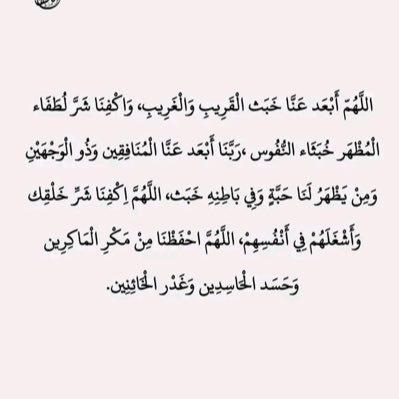 اللَّهُمّ أَبْعَد عَنَّا خَبَث الْقَرِيبِ وَالْغَرِيبِ، وَاكْفِنَا شَرَّ لُطَفَاء
الْمُظْهَر خُبَثَاء النُّفُوس ،رَبَّنَا أَبْعَد عَنَّا الْمُنَافِقِين وَذُو الْوَجْهَيْنِ
وَمِنْ يَظْهَرُ لَنَا حَبَّةٍ وَفِي بَاطِنِهِ خَبَث، اللَّهُمَّ اِكْفِنَا شَرِّ خَلْقِك
وَأَشْغَلَهُمْ فِي أَنْفُسِهِمْ، اللَّهُمَّ احْفَظْنَا مِنْ مَكْرِ الْمَاكِرِين
وَحَسَد الْحَاسِدِين وَغَدْر الْخَائِنِين.